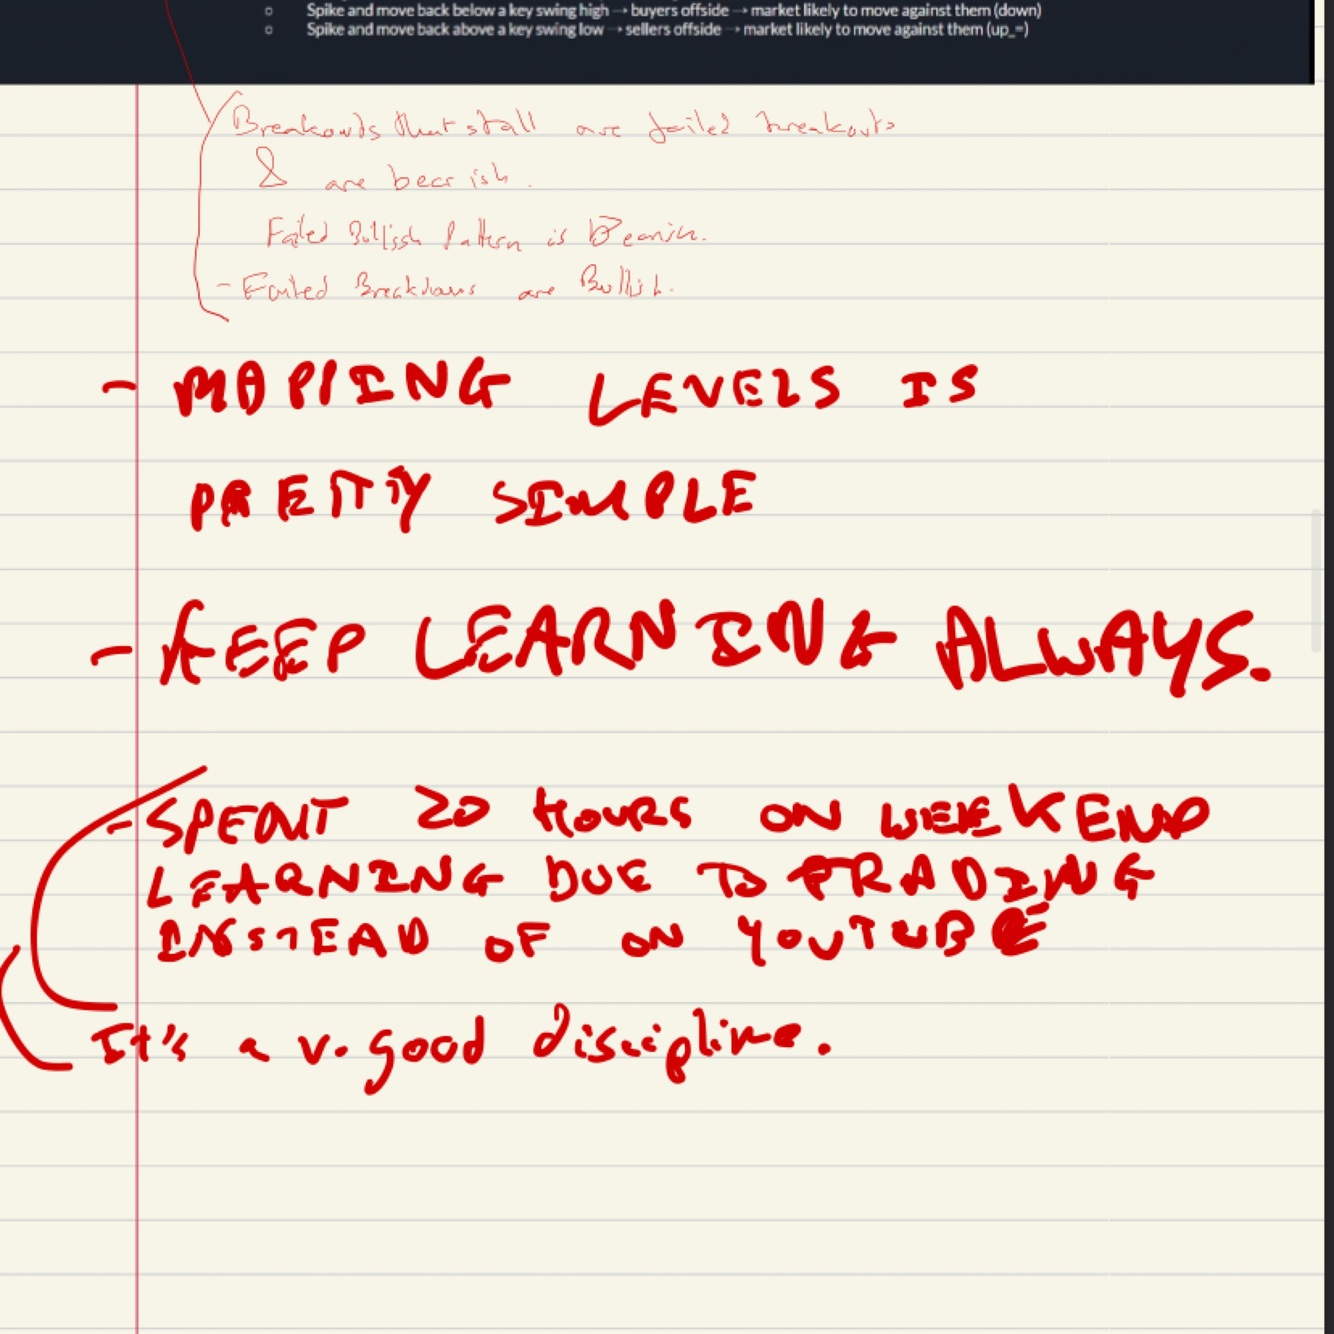 ○ Spike and move back below a key swing high → buyers offside → market likely to move against them (down)
○ Spike and move back above a key swing low → sellers offside → market likely to move against them (up_=)
Breakouts that stall are failed breakouts
& are bearish.
Failed Bullish Pattern is Bearish.
- Failed Breakdowns are Bullish.
- MAPPING LEVELS IS
PRETTY SIMPLE
- KEEP LEARNING ALWAYS.
- SPENT 20 HOURS ON WEEKEND
LEARNING DUE TO TRADING
INSTEAD OF ON YOUTUBE
It's a v. good discipline.